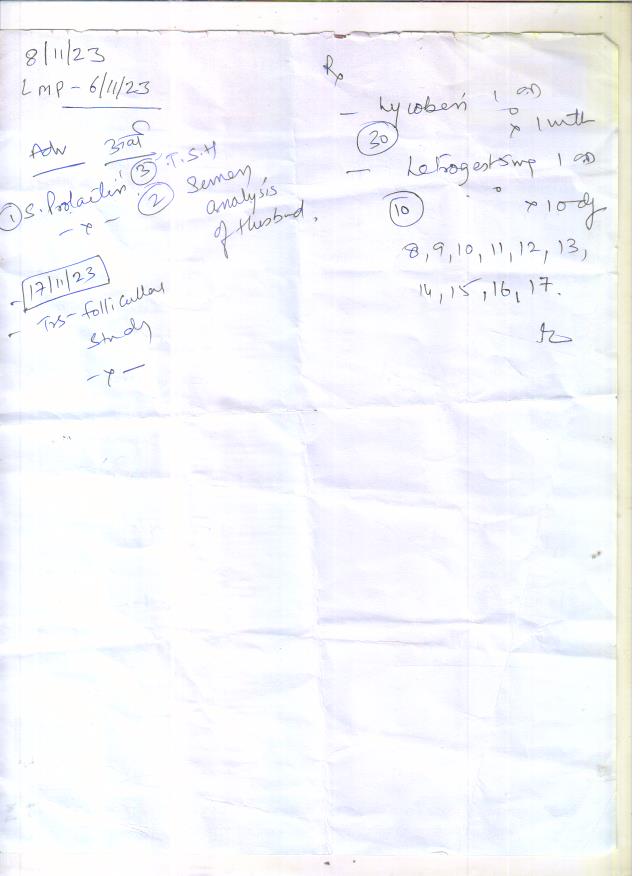 8/11/23
LMP - 6/11/23
Adv
① S. Prolactin ③ T.S.H
- x -
② Semen
analysis
of Husband.
- 17/11/23
- TVS - follicular
study
- x -
Rx
- Lycobest 1 OD
x 1 mth
30
- 1 OD
x 10 dy
10
8, 9, 10, 11, 12, 13,
14, 15, 16, 17.